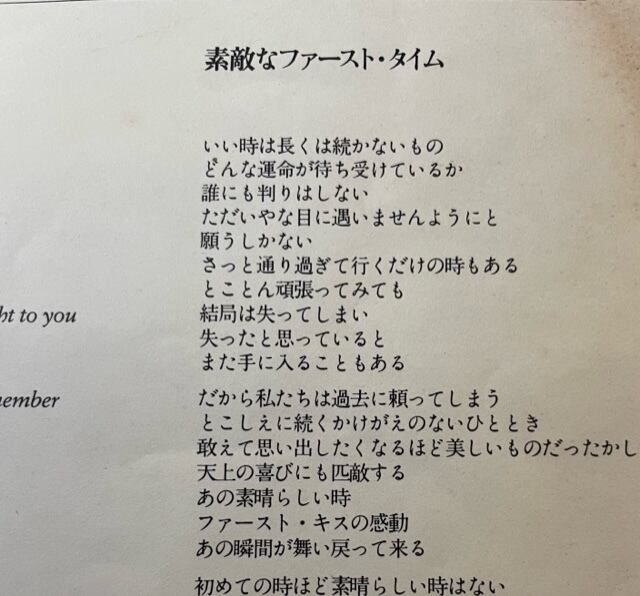 素敵なファースト・タイム
いい時は長くは続かないもの
どんな運命が待ち受けているか
誰にも判りはしない
ただいやな目に遇いませんようにと
願うしかない
さっと通り過ぎて行くだけの時もある
とことん頑張ってみても
ht to you
結局は失ってしまい
失ったと思っていると
また手に入ることもある
ember
だから私たちは過去に頼ってしまう
とこしえに続くかけがえのないひととき
敢えて思い出したくなるほど美しいものだったかし
天上の喜びにも匹敵する
あの素晴らしい時
ファースト・キスの感動
あの瞬間が舞い戻って来る
初めての時ほど素晴らしい時はない